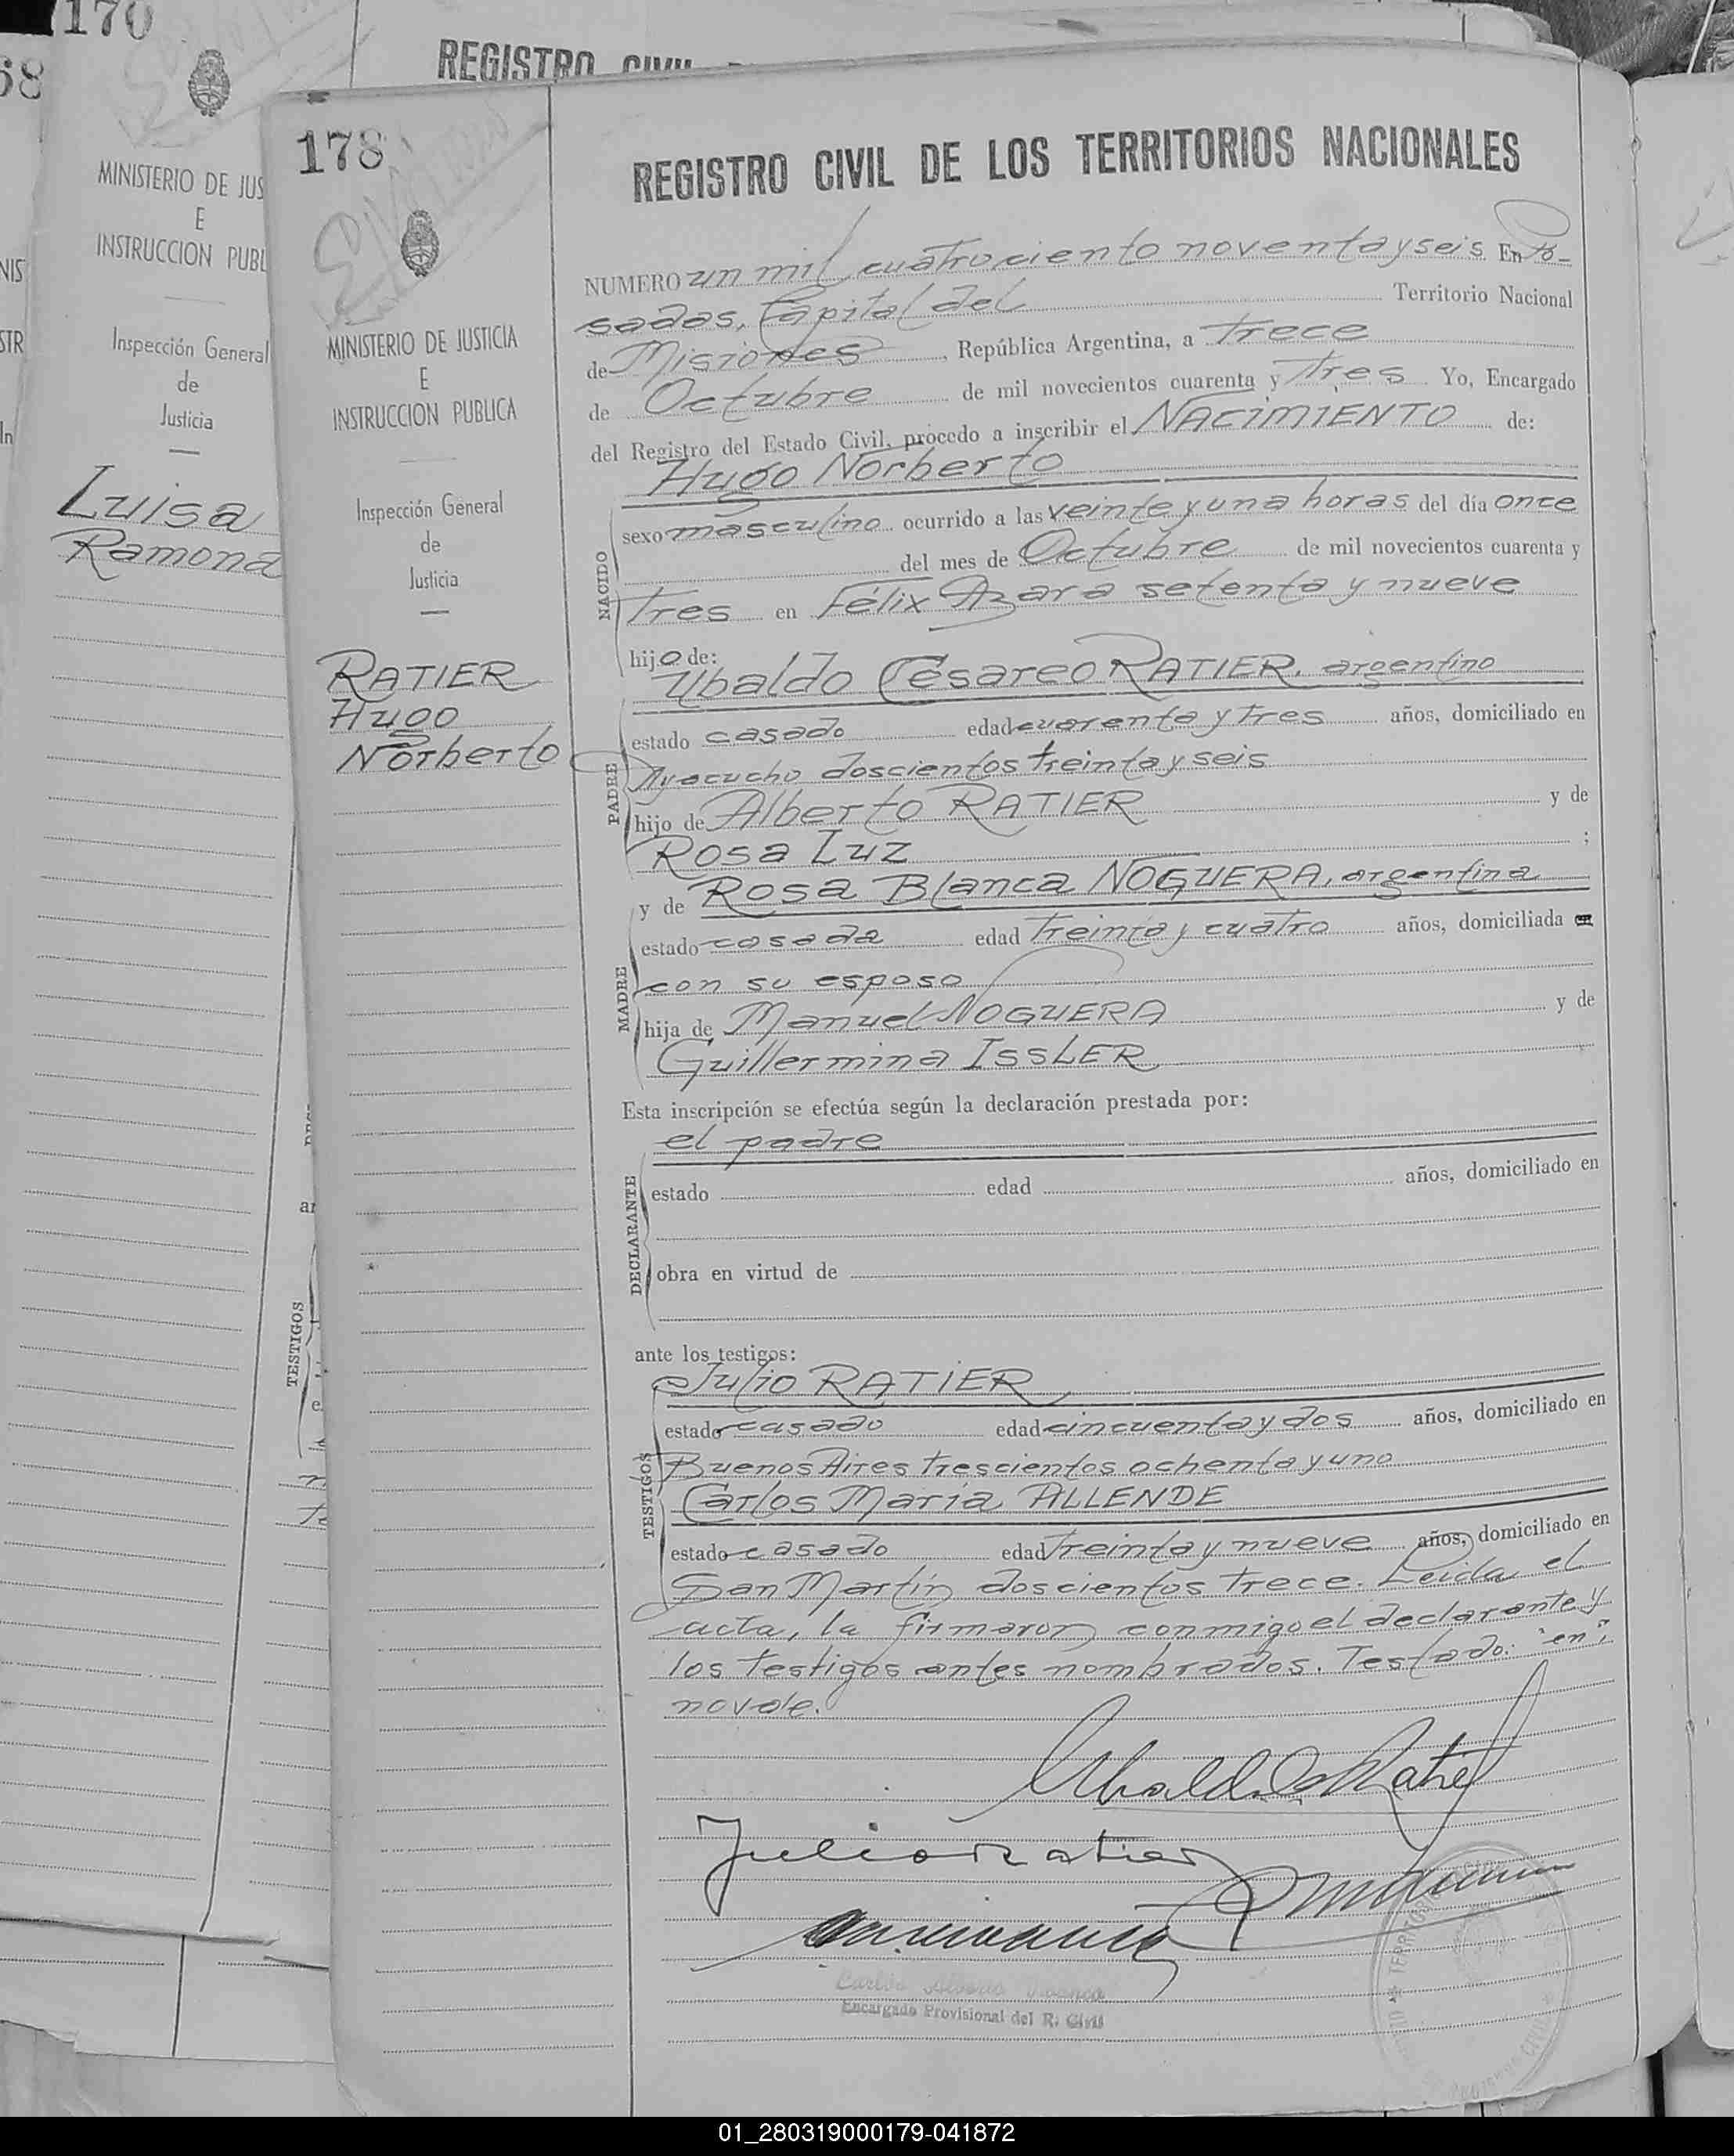 170
68
REGISTRO CIVIL
MINISTERIO DE JUS
E
INSTRUCCION PUBL
Inspección General
de
Justicia
Luisa
Ramona
NIS
STR
In
TESTIGOS
178
MINISTERIO DE JUSTICIA
E
INSTRUCCION PUBLICA
Inspección General
de
Justicia
RATIER
Hugo
Norberto
REGISTRO CIVIL DE LOS TERRITORIOS NACIONALES
NUMERO un mil cuatrociento noventa y seis En Po-
sadas, Capital del Territorio Nacional
de Misiones, República Argentina, a trece
de Octubre de mil novecientos cuarenta y tres Yo, Encargado
del Registro del Estado Civil, procedo a inscribir el NACIMIENTO de:
Hugo Norberto
sexo masculino ocurrido a las veinte y una horas del día once
del mes de Octubre de mil novecientos cuarenta y
NACIDO
tres en Félix Azara setenta y nueve
hijo de:
Ubaldo Cesareo RATIER, argentino
estado casado edad cuarenta y tres años, domiciliado en
Ayacucho doscientos treinta y seis
PADRE
hijo de Alberto RATIER y de
Rosa Luz ;
y de Rosa Blanca NOGUERA, argentina
estado casada edad treinta y cuatro años, domiciliada en
con su esposo
MADRE
hija de Manuel NOGUERA y de
Guillermina ISSLER
Esta inscripción se efectúa según la declaración prestada por:
el padre
estado edad años, domiciliado en
DECLARANTE
obra en virtud de
ante los testigos:
Julio RATIER
estado casado edad cincuenta y dos años, domiciliado en
Buenos Aires trescientos ochenta y uno
TESTIGOS
Carlos María ALLENDE
estado casado edad treinta y nueve años, domiciliado en
San Martín doscientos trece. Leida el
acta, la firmaron conmigo el declarante y
los testigos antes nombrados. Testado: "en":
no vale.
Ubaldo C. Ratier
Julio Ratier
Encargado Provisional del R. Civil
01_280319000179-041872